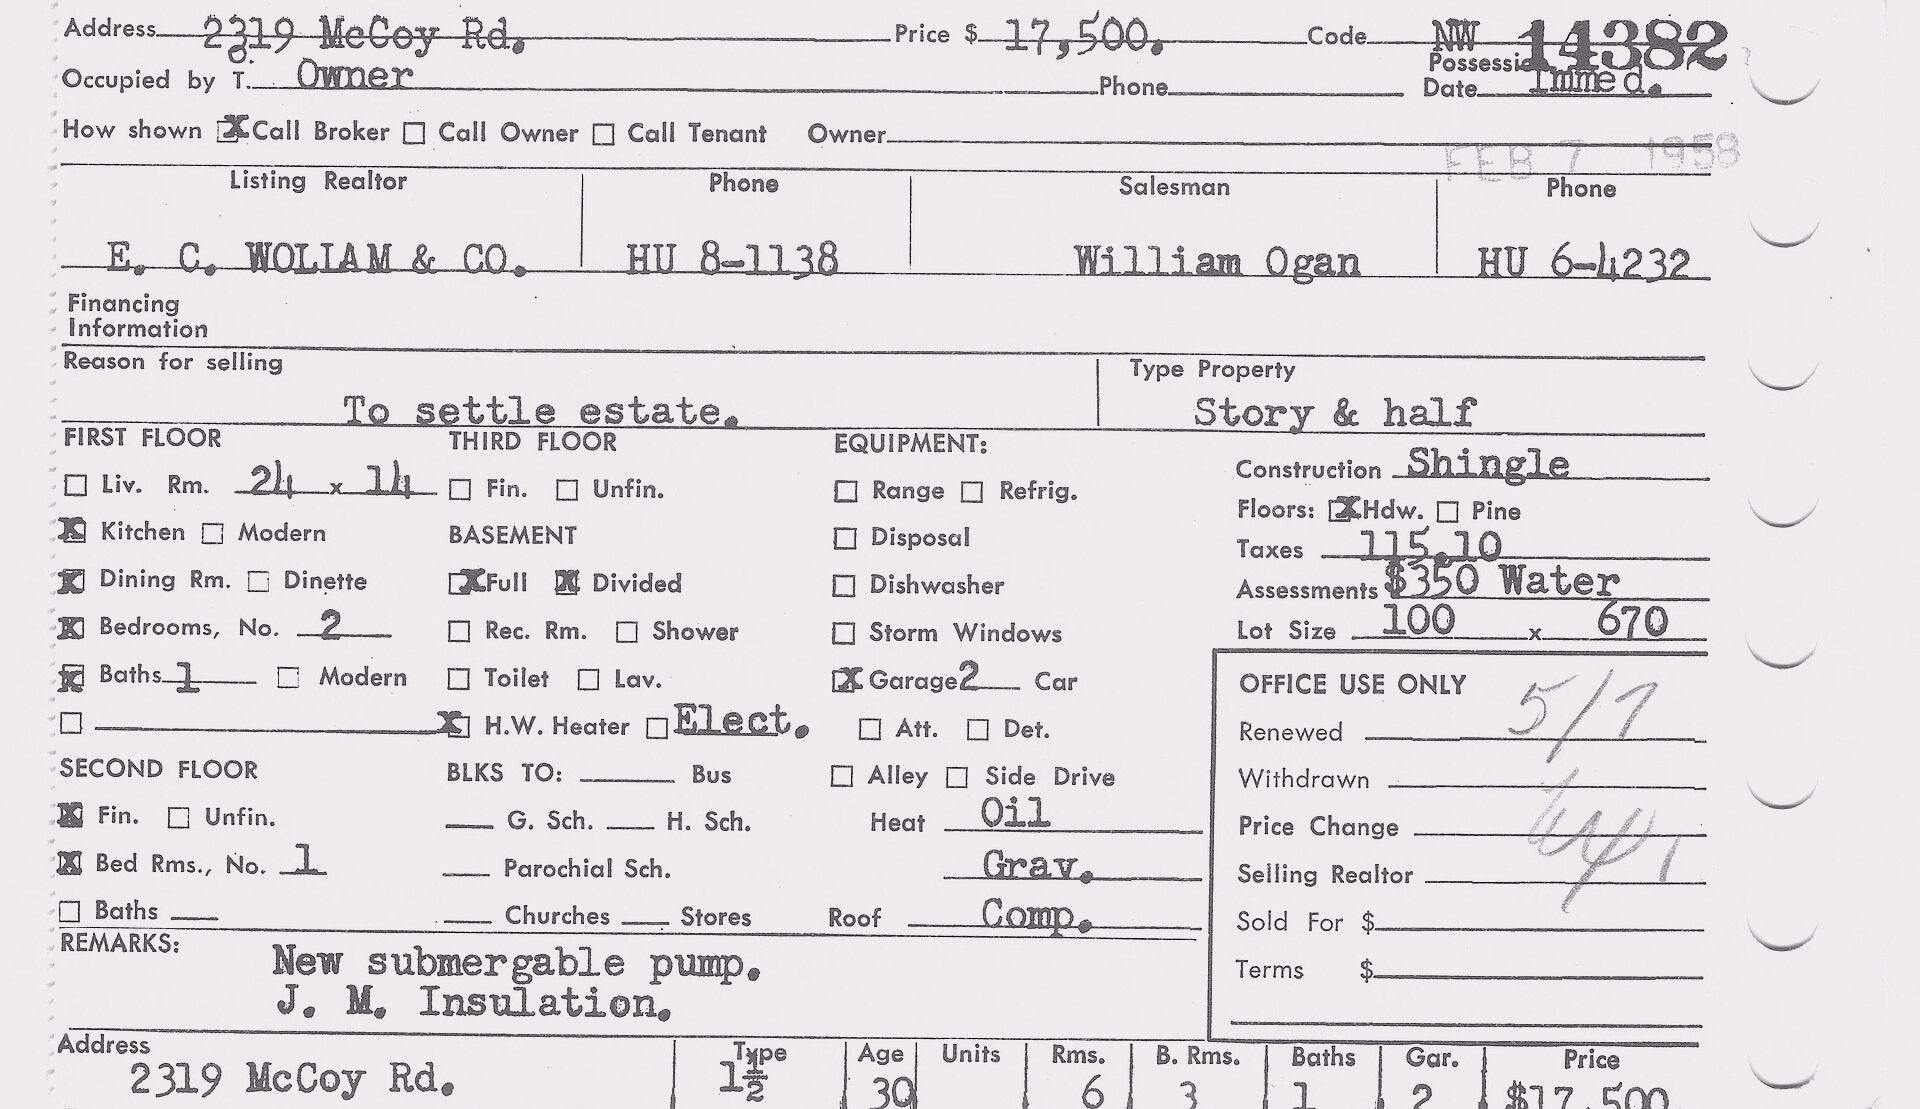 Address 2319 McCoy Rd. Price $ 17,500. Code NW 14382
Occupied by O. T. Owner Phone Possession Date Immed.
How shown X Call Broker Call Owner Call Tenant Owner
FEB 7 1958
Listing Realtor Phone Salesman Phone
E. C. WOLIAM & CO. HU 8-1138 William Ogan HU 6-4232
Financing
Information
Reason for selling Type Property
To settle estate. Story & half
FIRST FLOOR THIRD FLOOR EQUIPMENT:
Construction Shingle
Liv. Rm. 24 x 14 Fin. Unfin. Range Refrig.
Floors: X Hdw. Pine
X Kitchen Modern BASEMENT Disposal
Taxes 115.10
X Dining Rm. Dinette X Full X Divided Dishwasher
Assessments $350 Water
X Bedrooms, No. 2 Rec. Rm. Shower Storm Windows
Lot Size 100 x 670
X Baths 1 Modern Toilet Lav. X Garage 2 Car
OFFICE USE ONLY
X H.W. Heater Elect. Att. Det.
Renewed 5/7
SECOND FLOOR BLKS TO: Bus Alley Side Drive
Withdrawn
X Fin. Unfin. G. Sch. H. Sch. Heat Oil
Price Change
X Bed Rms., No. 1 Parochial Sch. Grav.
Selling Realtor
Baths Churches Stores Roof Comp.
Sold For $
REMARKS: New submergable pump.
Terms $
J. M. Insulation.
Address Type Age Units Rms. B. Rms. Baths Gar. Price
2319 McCoy Rd. 1½ 30 6 3 1 2 $17,500